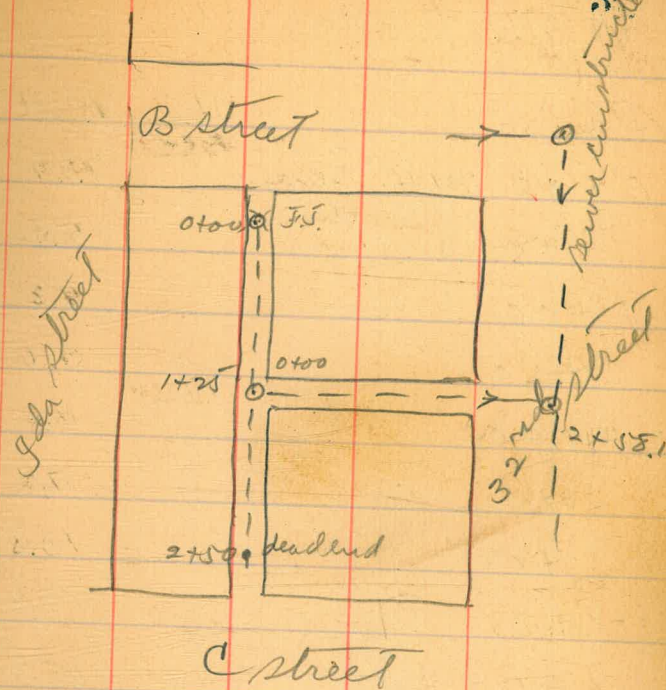 B street
sewer construc
0+00
F.J.
Ida street
1+25
0+00
32nd street
2+58.1
2+50
dead end
C street